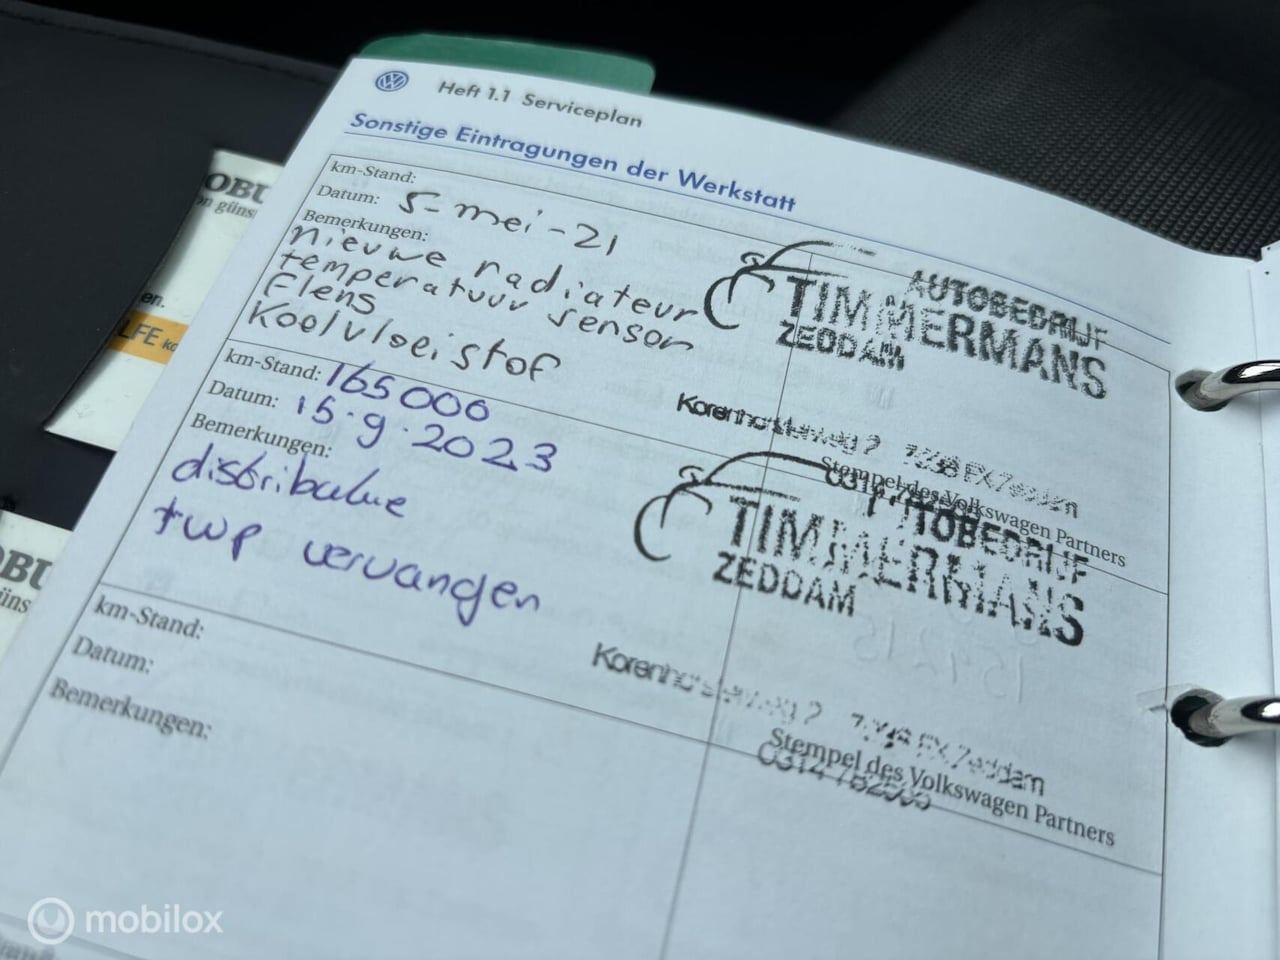 Heft 1.1 Serviceplan
Sonstige Eintragungen der Werkstatt
km-Stand:
Datum: 5-mei-21
Bemerkungen:
nieuwe radiateur
temperatuur sensor
Flens
Koelvloeistof
AUTOBEDRIJF
TIMMERMANS
ZEDDAM
Stempel des Volkswagen Partners
km-Stand: 165000
Datum: 15.9.2023
Bemerkungen:
distributie
+wp vervangen
AUTOBEDRIJF
TIMMERMANS
ZEDDAM
Zeddam
Stempel des Volkswagen Partners
km-Stand:
Datum:
Bemerkungen:
OBU
on güns
en.
LFE
OBU
güns
mobilox